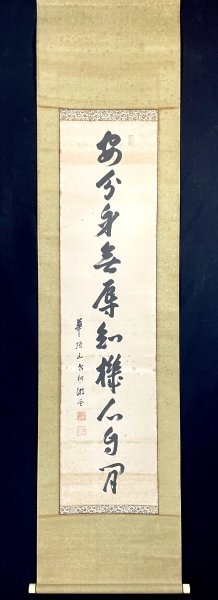 安分身無辱知機心自閑
華頂山